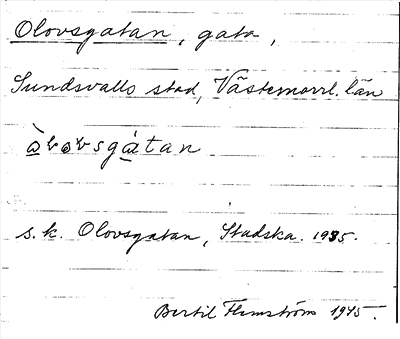 Olovsgatan, gata,
Sundsvalls stad, Västernorrl. län
s.k. Olovsgatan, Stadska. 1935.
Bertil Flemström 1945.